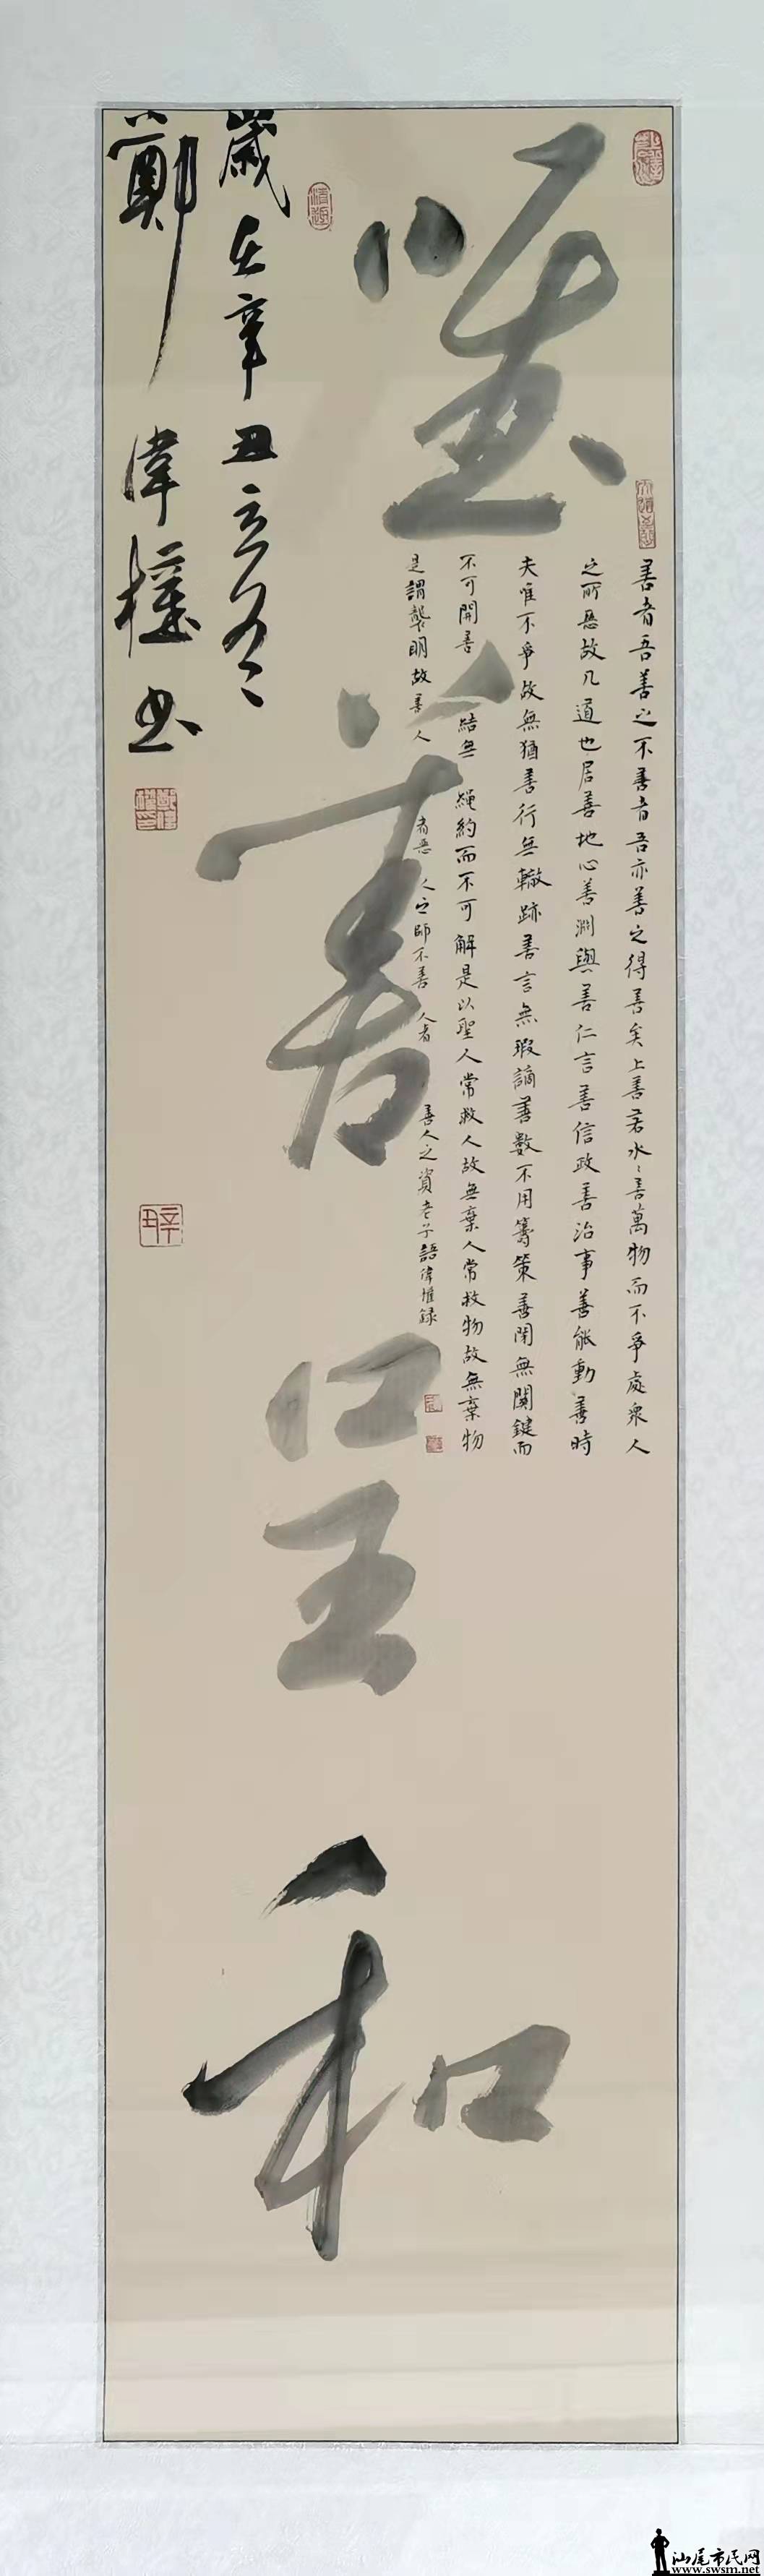 惟善呈和
善者吾善之不善者吾亦善之得善矣上善若水水善萬物而不爭處衆人
之所惡故几道也居善地心善淵與善仁言善信政善治事善能動善時
夫唯不爭故無猶善行無轍跡善言無瑕謫善數不用籌策善閉無關鍵而
不可開善結無繩約而不可解是以聖人常救人故無棄人常救物故無棄物
是謂襲明故善人者惡人之師不善人者善人之資老子語偉權錄
歲在辛丑立冬
鄭偉權书
辛丑
汕尾市民网
www.swsm.net